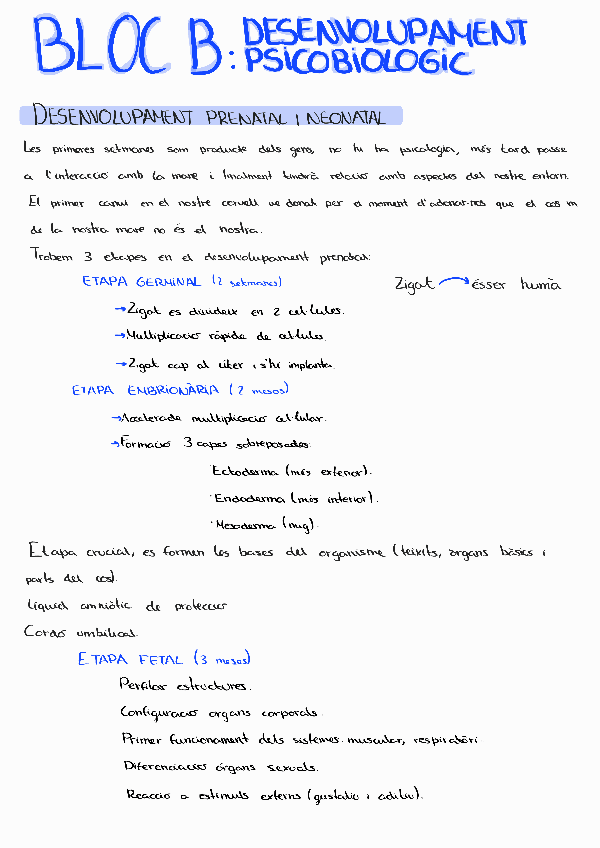 BLOC B: DESENVOLUPAMENT PSICOBIOLOGIC
DESENVOLUPAMENT PRENATAL I NEONATAL
Les primeres setmanes som producte dels gens, no hi ha psicologia, més tard passa
a l'interacció amb la mare i finalment tindrà relació amb aspectes del nostre entorn.
El primer canvi en el nostre cervell ve donat per el moment d'adonar-nos que el cos
de la nostra mare no és el nostra.
Trobem 3 etapes en el desenvolupament prenatal:
ETAPA GERMINAL (2 setmanes)
Zigot → ésser humà
→ Zigot es divideix en 2 cèl·lules.
→ Multiplicació ràpida de cèl·lules.
→ Zigot cap al úter i s'hi implanta.
ETAPA EMBRIONÀRIA (2 mesos)
→ Accelerada multiplicació cel·lular.
→ Formació 3 capes sobreposades:
· Ectoderma (més exterior).
· Endoderma (més interior).
· Mesoderma (mig).
Etapa crucial, es formen les bases del organisme (teixits, òrgans bàsics i
parts del cos).
Líquid amniòtic de protecció
Cordó umbilical.
ETAPA FETAL (3 mesos)
Perfilar estructures.
Configuració organs corporals.
Primer funcionament dels sistemes muscular, respiratori
Diferenciació òrgans sexuals.
Reacció a estímuls externs (gustatiu i auditiu).